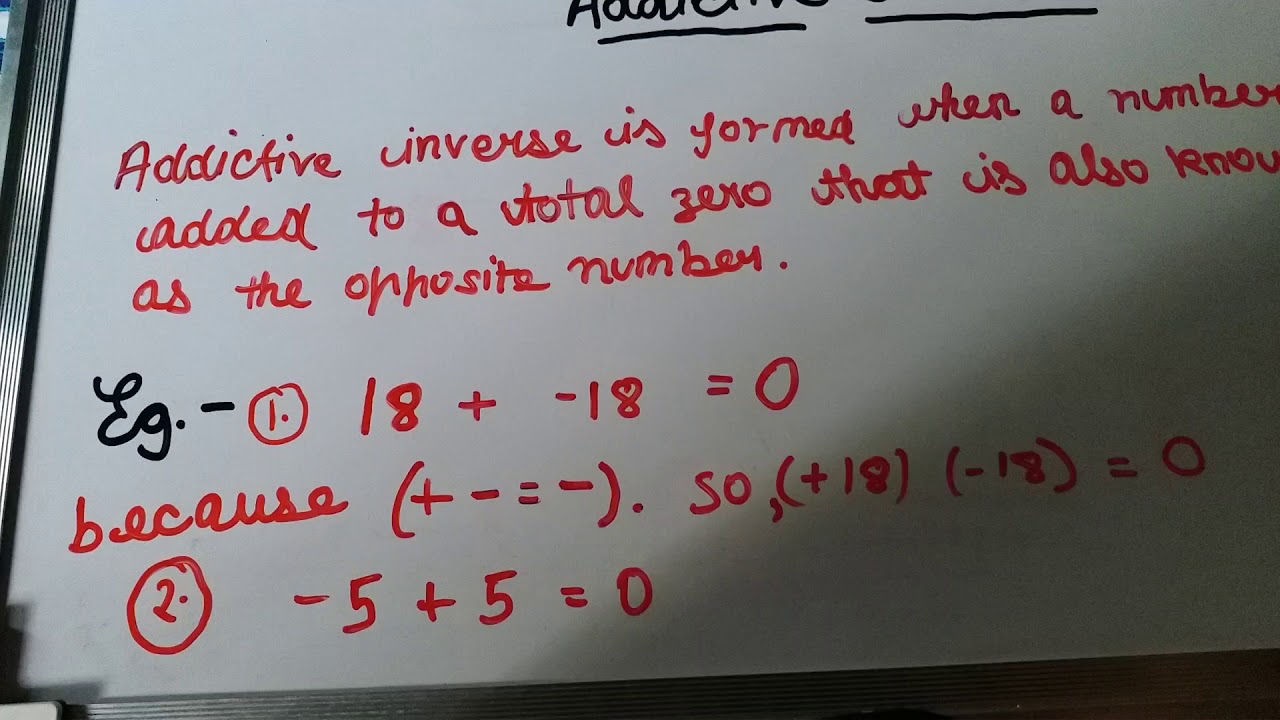 Addictive
Addictive inverse is formed when a number
added to a total zero that is also know
as the opposite number.
Eg.- 1. 18 + -18 = 0
because (+ - = -). so, (+18) (-18) = 0
2. -5 + 5 = 0